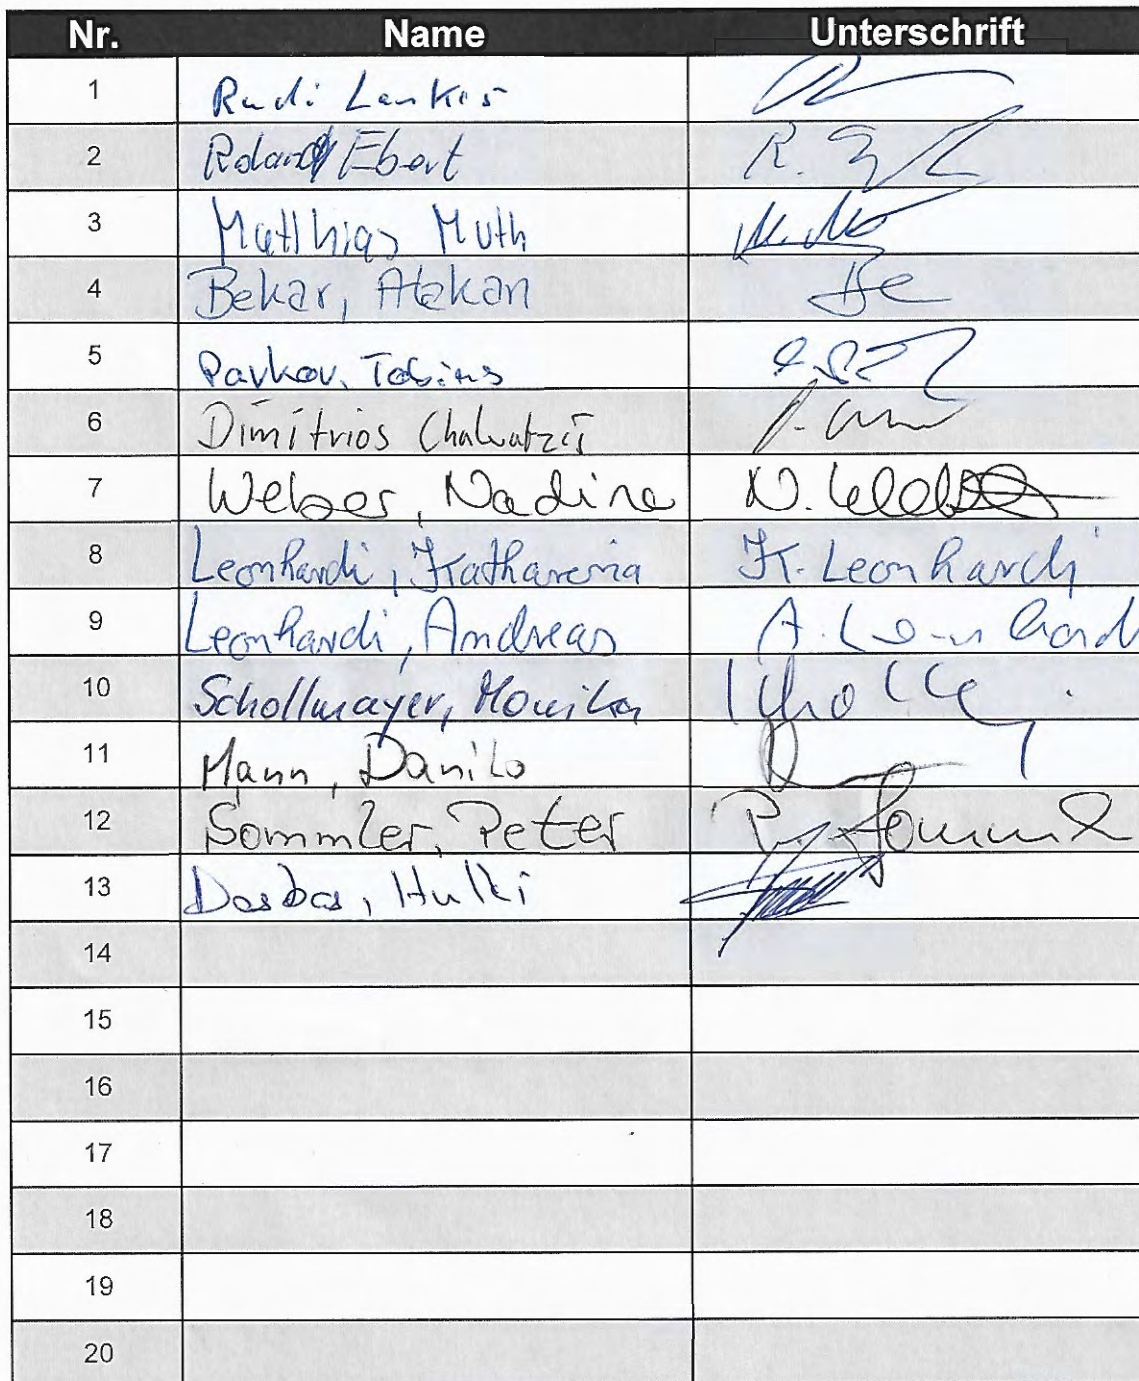 Nr. Name Unterschrift
1 Rudi
2 Roland Ebert R.
3 Matthias Muth
4 Bekar, Atakan Be
5 Tobias
6 Dimitrios Chalvatzis
7 Weber, Nadine N. Weber
8 Leonhardi, Katharina K. Leonhardi
9 Leonhardi, Andreas A. Leonhardi
10 Schollmayer, Monika
11 Mann, Danilo
12 Sommler, Peter P. Somml
13 Dasbas, Hulki
14
15
16
17
18
19
20